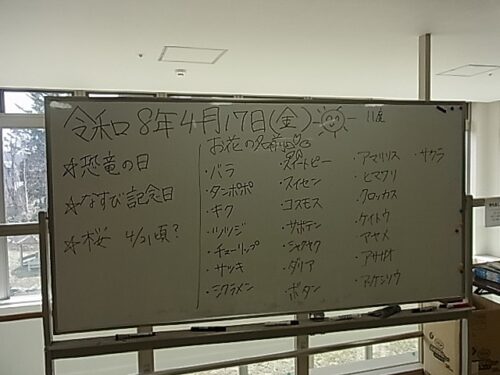 令和8年4月17日(金) 11度
☆恐竜の日
☆なすび記念日
☆桜 4/21頃?
お花の名前
・バラ
・タンポポ
・キク
・ツツジ
・チューリップ
・サツキ
・シクラメン
・スイートピー
・スイセン
・コスモス
・サボテン
・シャクヤク
・ダリア
・ボタン
・アマリリス
・ヒマワリ
・クロッカス
・ケイトウ
・アヤメ
・アサガオ
・サクラ